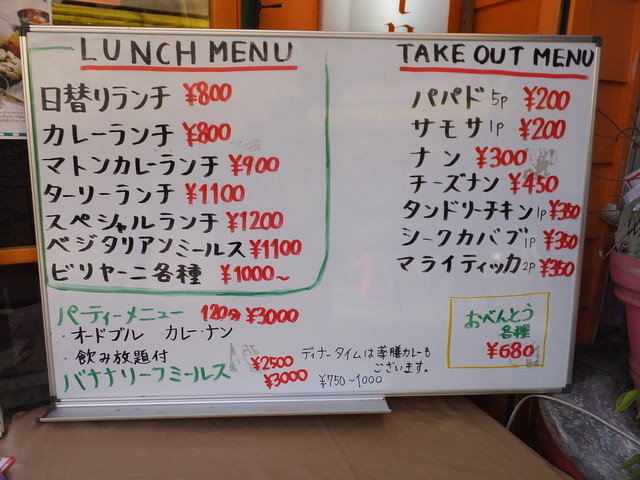 LUNCH MENU
日替りランチ ¥800
カレーランチ ¥800
マトンカレーランチ ¥900
ターリーランチ ¥1100
スペシャルランチ ¥1200
ベジタリアンミールス ¥1100
ビリヤーニ各種 ¥1000~
パーティーメニュー 120分 ¥3000
・オードブル カレー・ナン
・飲み放題付
バナナリーフミールス ¥2500
¥3000
TAKE OUT MENU
パパド 5p ¥200
サモサ 1p ¥200
ナン ¥300
チーズナン ¥450
タンドリーチキン 1p ¥350
シークカバブ 1p ¥350
マライティッカ 2p ¥350
おべんとう
各種
¥680
ディナータイムは薬膳カレーも
ございます。
¥750~1000